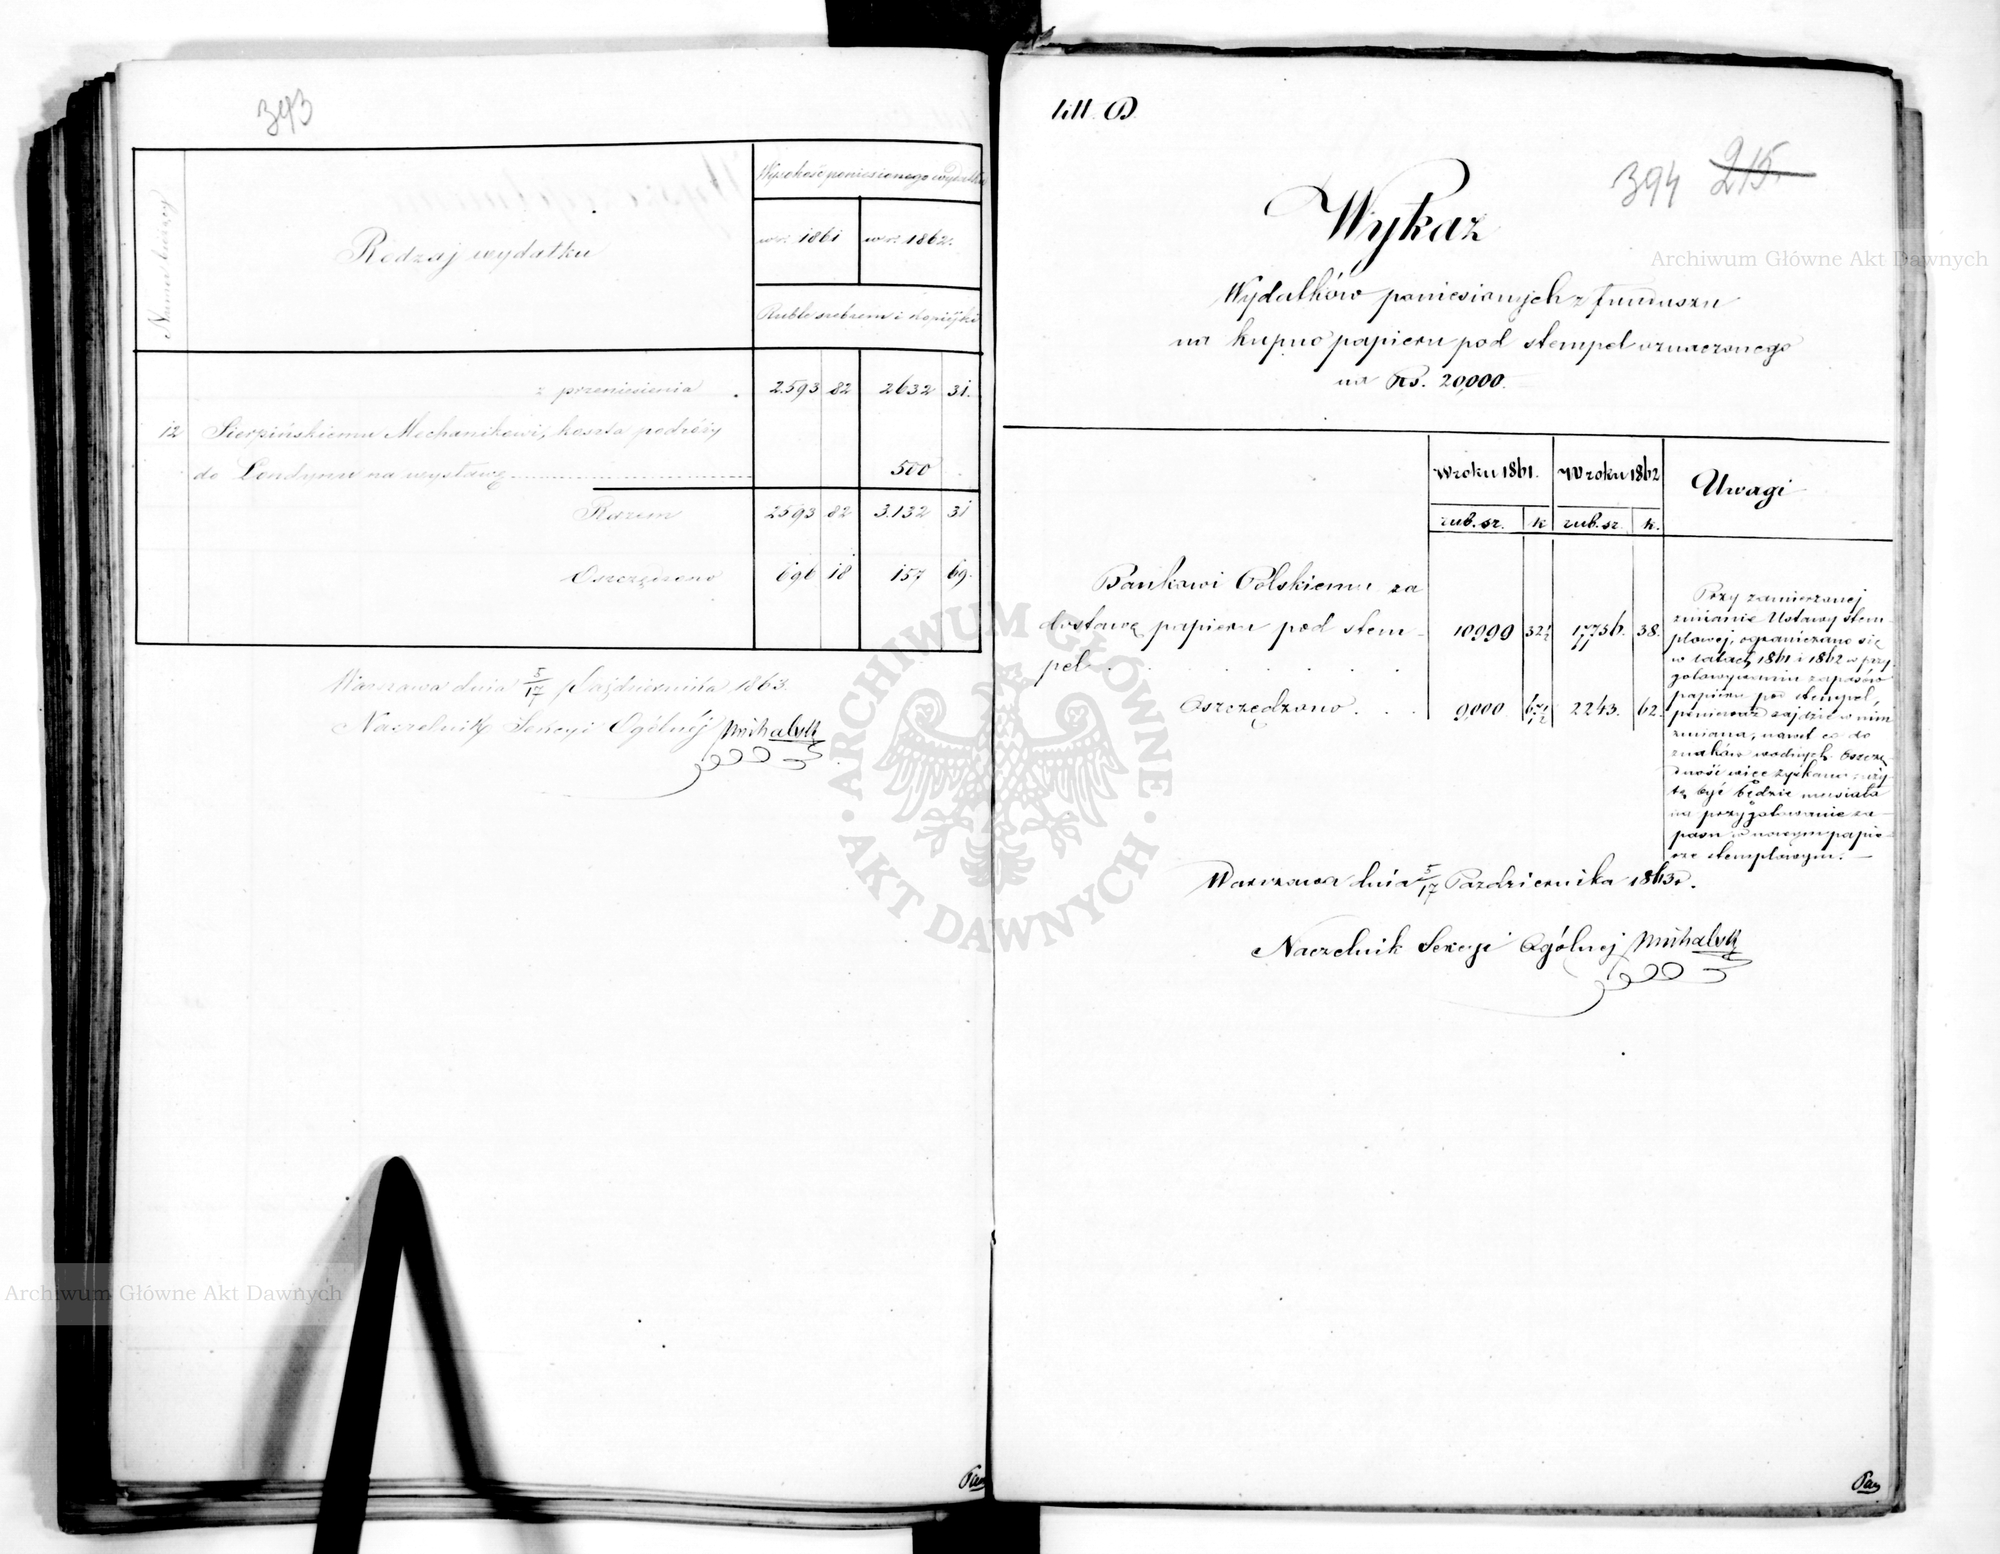 393
Numer bieżący
Rodzaj wydatku
Wysokość poniesionego wydatku
w r. 1861 w r. 1862.
Ruble srebrem i kopiejki
z przeniesienia . 2593 82 2632 31.
12 Sierpińskiemu Mechanikowi, koszta podróży
do Londynu na wystawę 500 .
Razem 2593 82 3.132 31
Oszczędzono 696 18 157 69.
Warszawa dnia 5/17 Października 1863.
Naczelnik Sekcyi Ogólnéj
Litt. B.
394 215.
Wykaz
Wydatków poniesionych z funduszu
na kupno papieru pod stempel oznaczonego
na Rs. 20,000.
W roku 1861. W roku 1862 Uwagi
rub. sr. k rub. sr. k.
Bankowi Polskiemu za
dostawę papieru pod stem- 10999 32½ 17756. 38.
pel . . . . . .
Oszczędzono . . . 9,000 67½ 2243. 62.
Przy zamierzonej
zmianie Ustawy stem-
plowej, ograniczano się
w latach 1861 i 1862 w przy-
gotowywaniu zapasów
papieru pod stempel,
ponieważ zajdzie w nim
zmiana, nawet co do
znaków wodnych. Oszczę-
dność więc zyskana, uży-
tą być będzie musiała
na przygotowanie za-
pasu w nowym papie-
rze stemplowym. —
Warszawa dnia 5/17 Października 1863 r.
Naczelnik Sekcyi Ogólnej
Archiwum Główne Akt Dawnych
ARCHIWUM GŁÓWNE
AKT DAWNYCH
Archiwum Główne Akt Dawnych